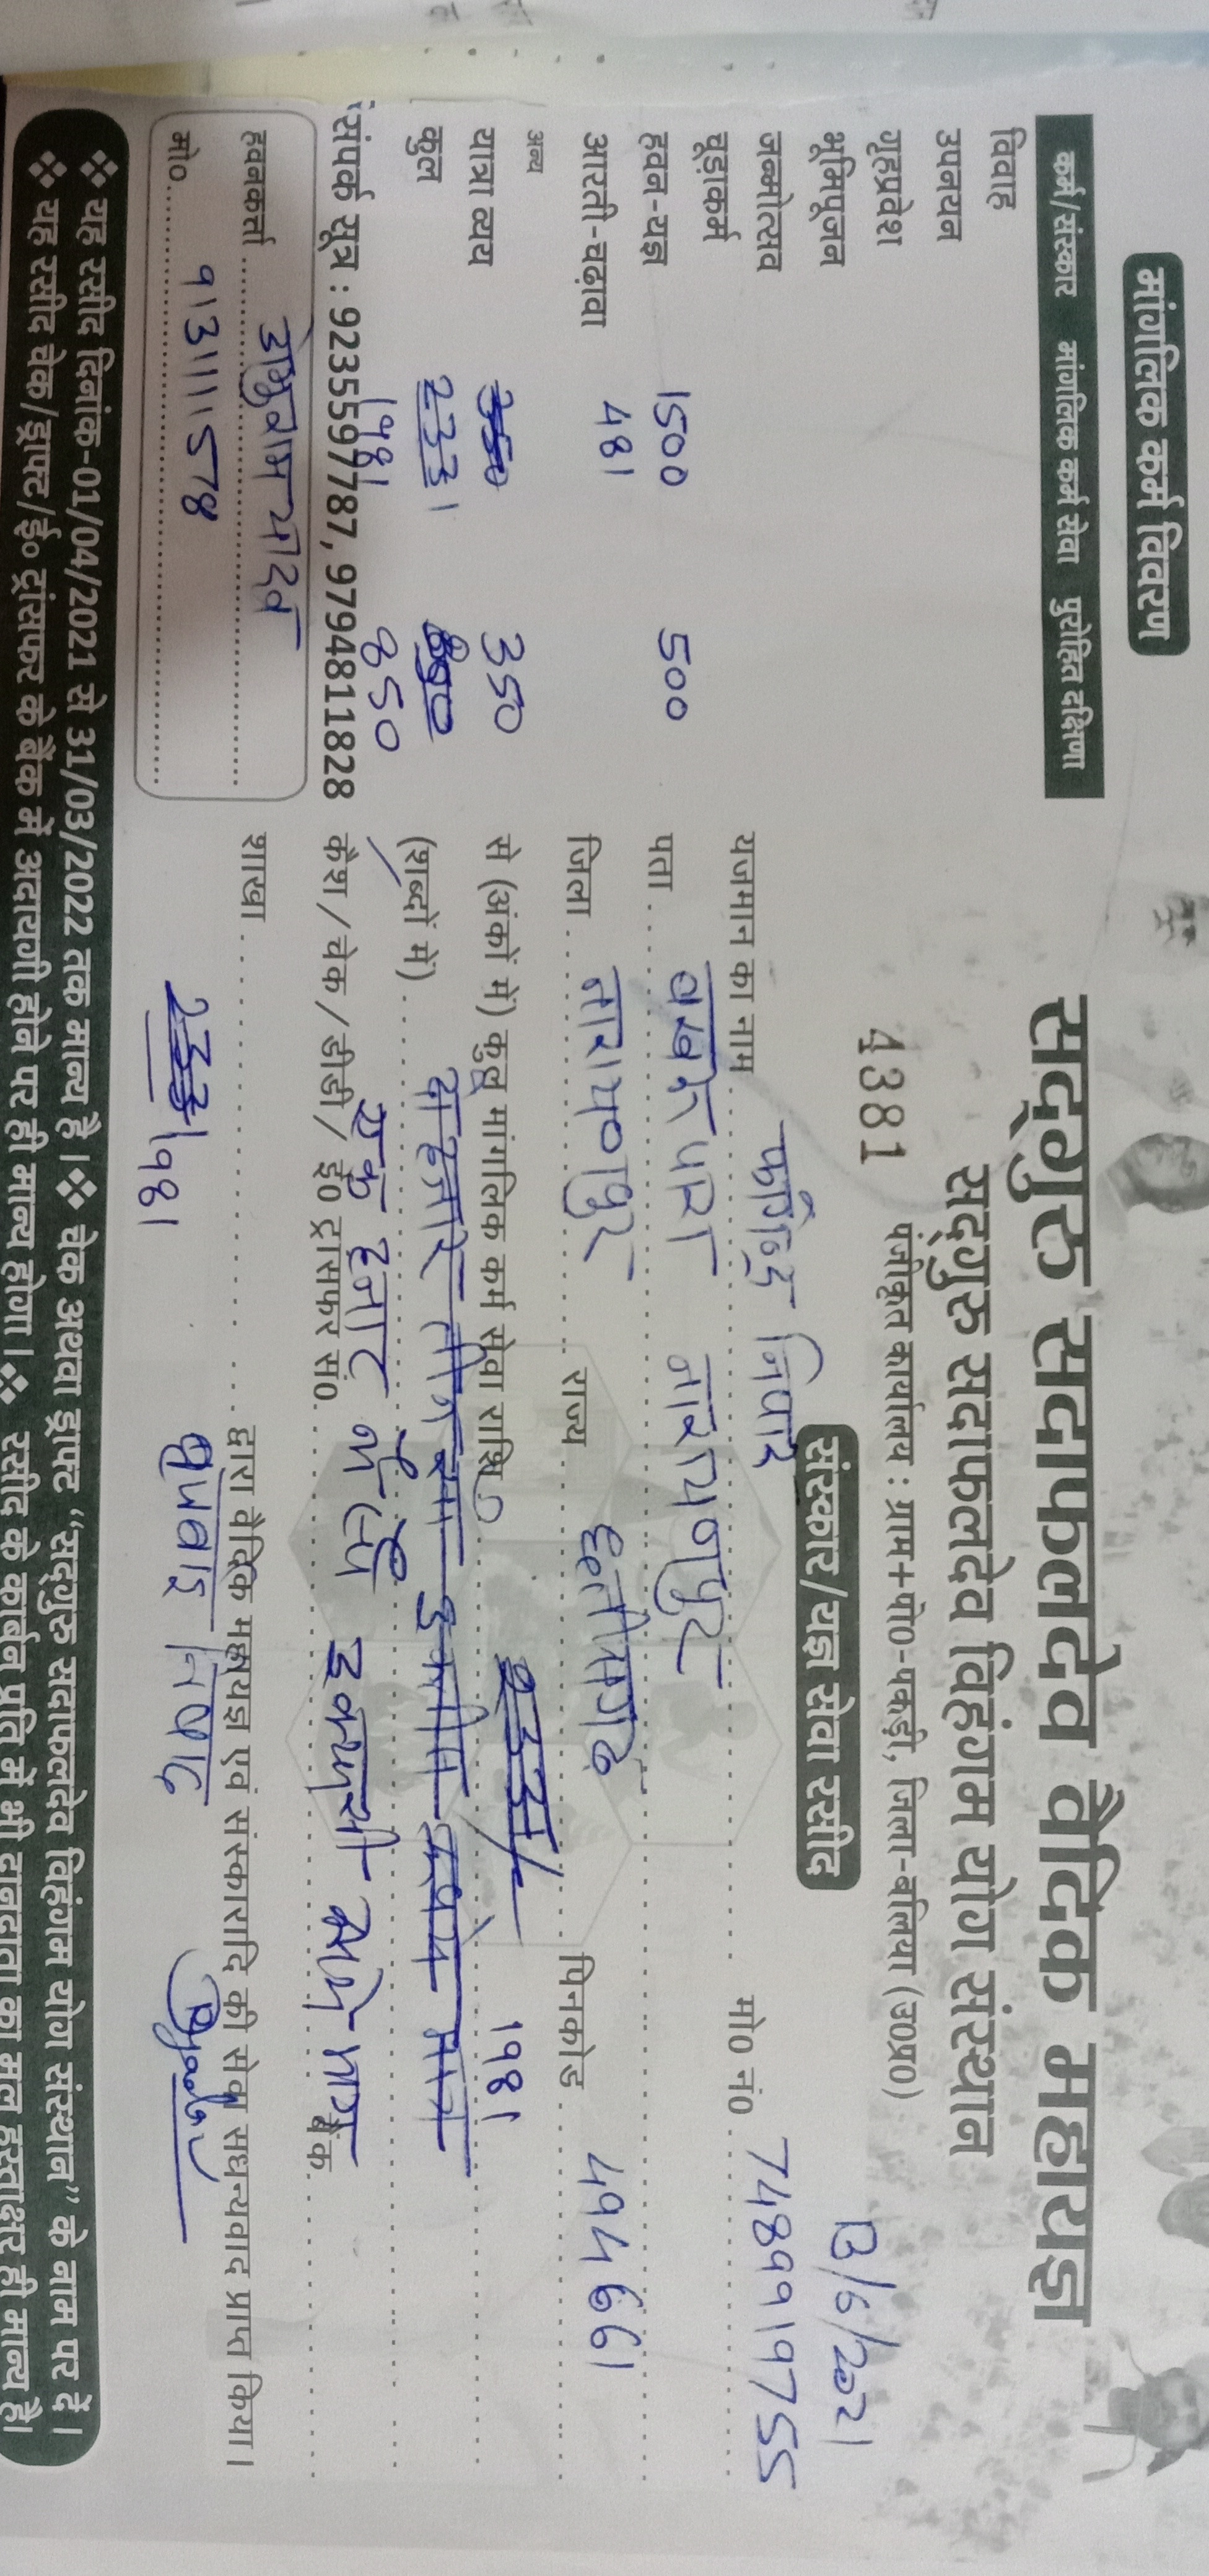 मांगलिक कर्म विवरण
कर्म/संस्कार मांगलिक कर्म सेवा पुरोहित दक्षिणा
विवाह
उपनयन
गृहप्रवेश
भूमिपूजन
जन्मोत्सव
चूड़ाकर्म
हवन-यज्ञ 1500 500
आरती-चढ़ावा 481
अन्य
यात्रा व्यय 350 350
कुल 2331
1981 850
संपर्क सूत्र : 9235597787, 9794811828
हवनकर्त्ता
मो०
सद्गुरु सदाफलदेव वैदिक महायज्ञ
सद्गुरु सदाफलदेव विहंगम योग संस्थान
4381 पंजीकृत कार्यालय : ग्राम+पो०-पकड़ी, जिला-बलिया (उ०प्र०)
संस्कार/यज्ञ सेवा रसीद
यजमान का नाम मो० नं० 7489919755
पता नारायणपुर
जिला नारायणपुर राज्य छत्तीसगढ़ पिनकोड 494661
से (अंकों में) कुल मांगलिक कर्म सेवा राशि 1981
(शब्दों में) दो हजार तीन सौ इकतीस रुपये मात्र
एक हजार नौ सौ इक्यासी रुपये मात्र
कैश / चेक / डीडी/ ई० ट्रांसफर सं० बैंक
शाखा द्वारा वैदिक महायज्ञ एवं संस्कारादि की सेवा सधन्यवाद प्राप्त किया।
1981
❖ यह रसीद दिनांक-01/04/2021 से 31/03/2022 तक मान्य है। ❖ चेक अथवा ड्राफ्ट “सद्गुरु सदाफलदेव विहंगम योग संस्थान” के नाम पर दें।
❖ यह रसीद चेक/ड्राफ्ट/ई० ट्रांसफर के बैंक में अदायगी होने पर ही मान्य होगा। ❖ रसीद के कार्बन प्रति में भी दानदाता का मूल हस्ताक्षर ही मान्य है।